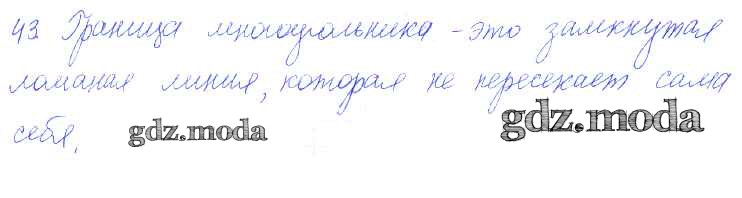 43. Граница многоугольника - это замкнутая
ломаная линия, которая не пересекает сама
себя.
gdz.moda
gdz.moda